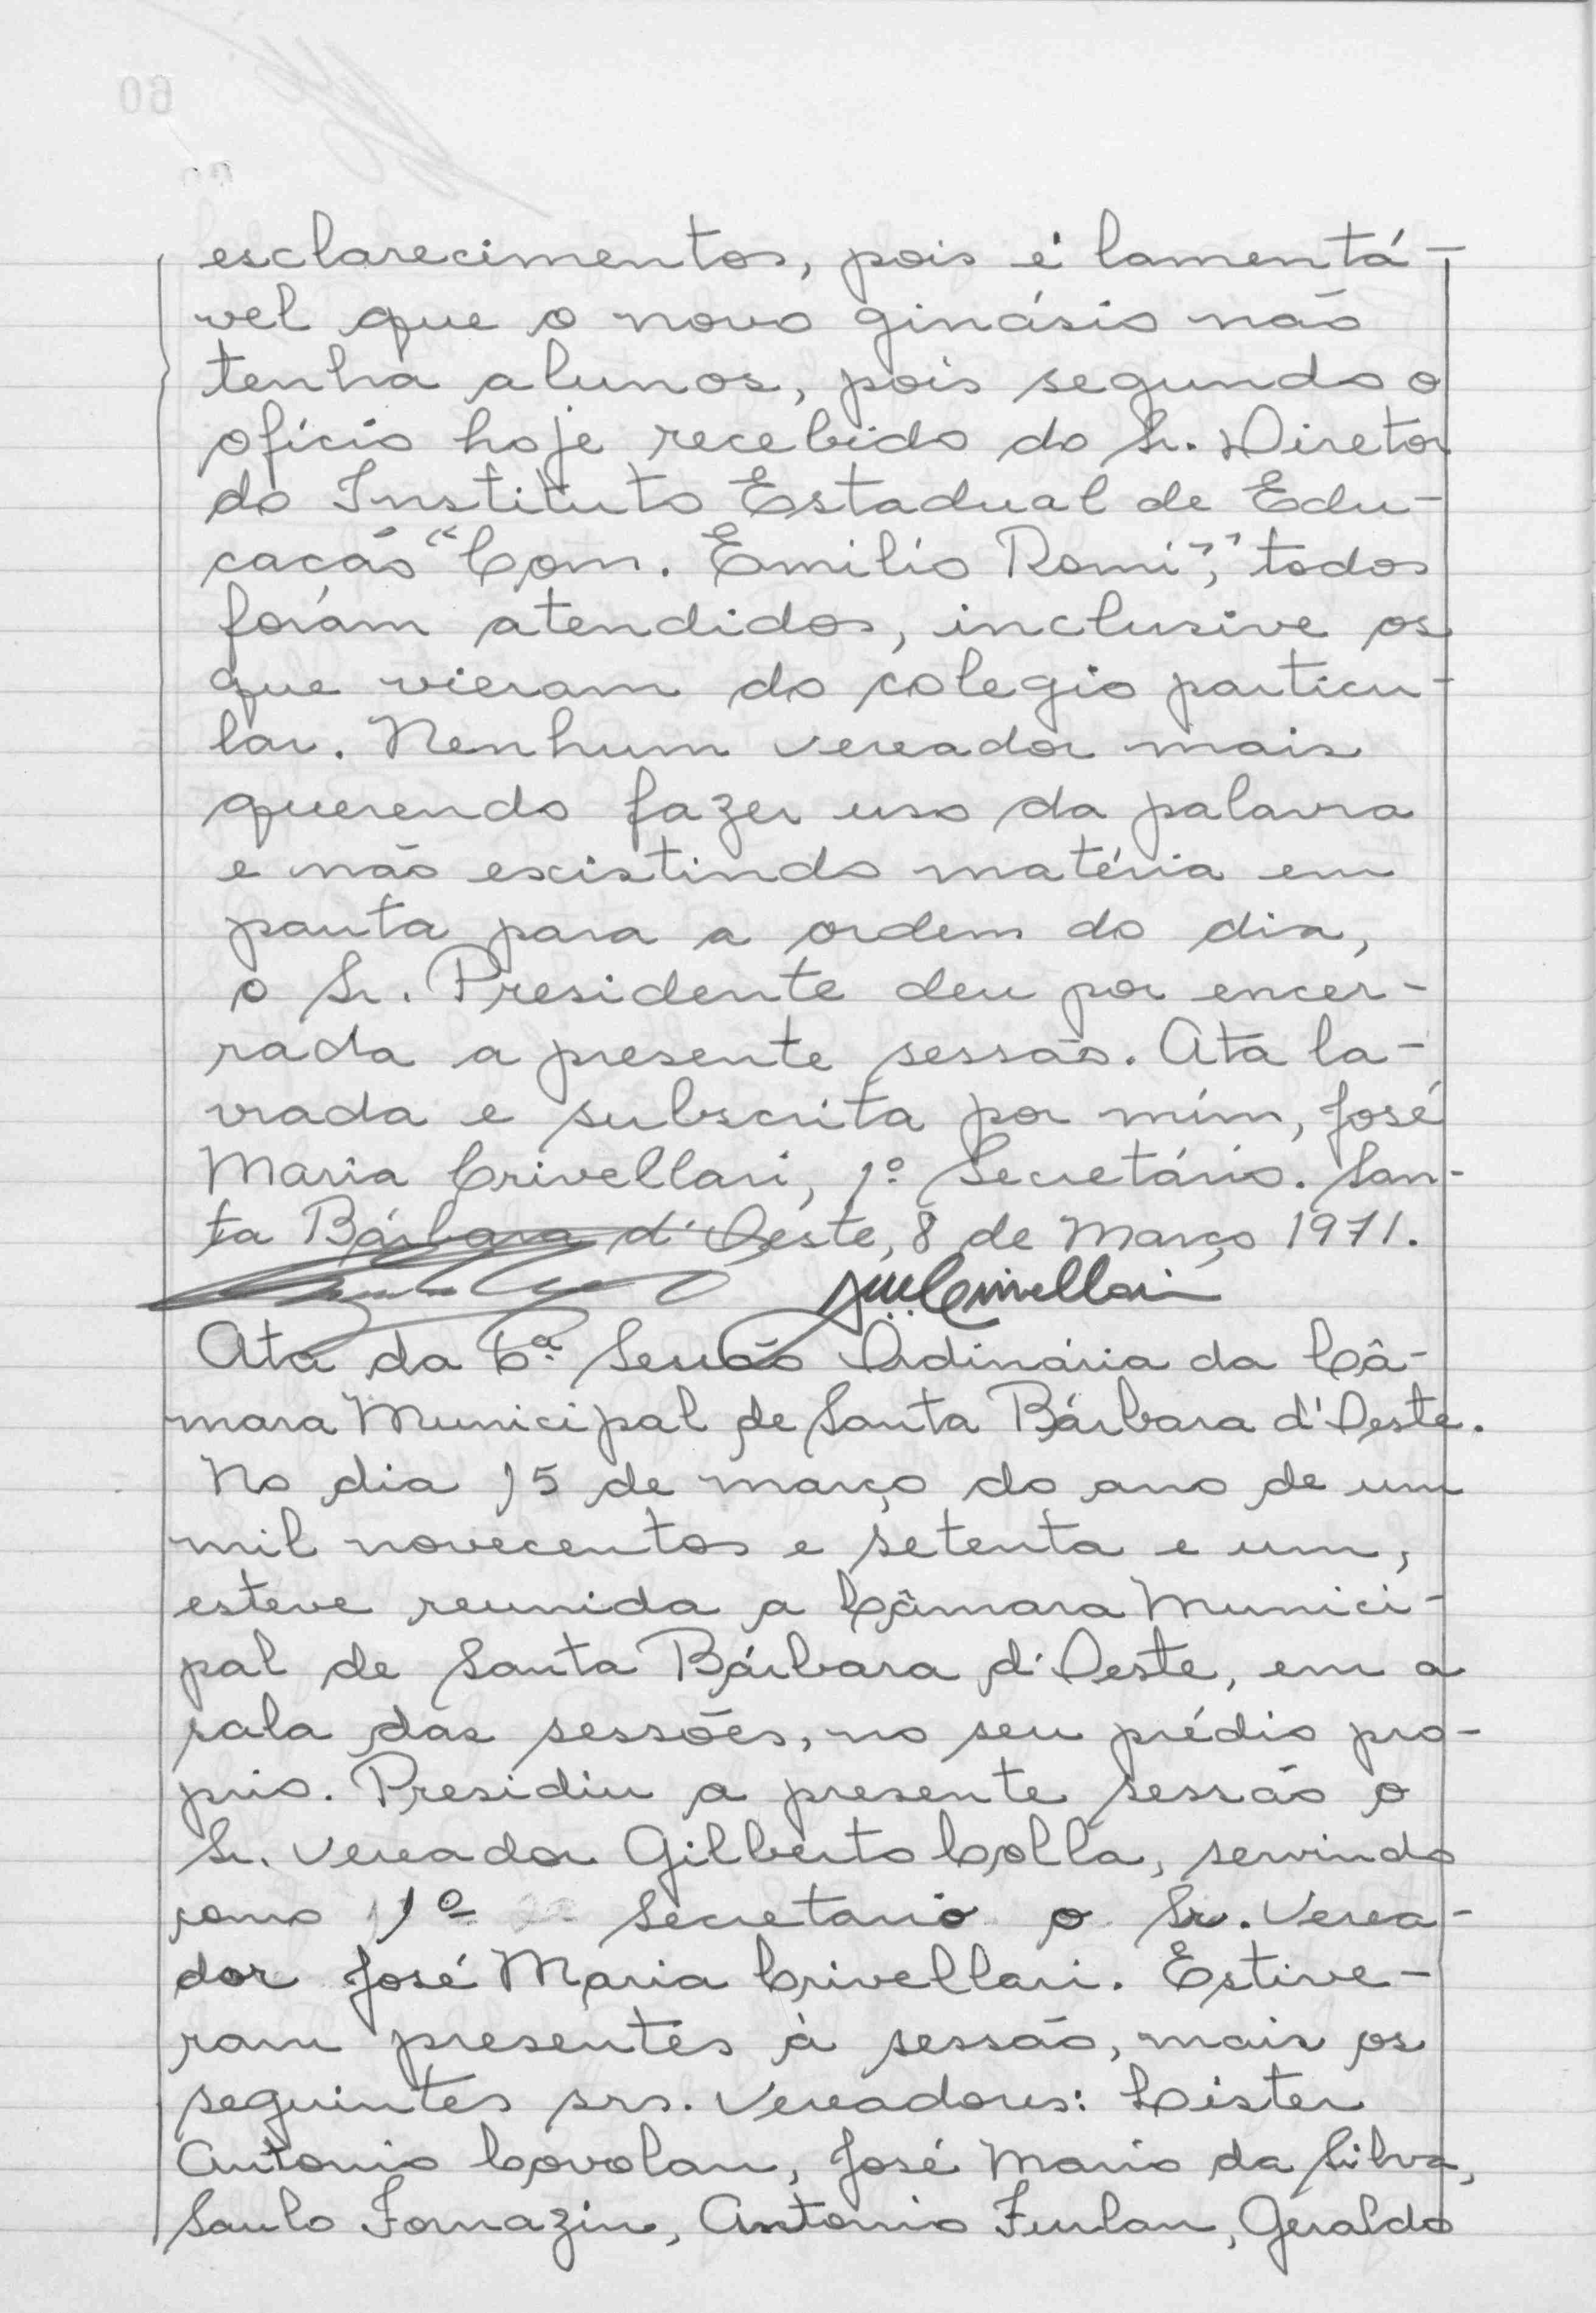 esclarecimentos, pois é lamentá-
vel que o novo ginásio não
tenha alunos, pois segundo o
ofício hoje recebido do Sr. Diretor
do Instituto Estadual de Edu-
cacão "Com. Emilio Romi", todos
foram atendidos, inclusive os
que vieram do colegio particu-
lar. Nenhum vereador mais
querendo fazer uso da palavra
e não existindo matéria em
pauta para a ordem do dia,
o Sr. Presidente deu por encer-
rada a presente sessão. Ata la-
vrada e subscrita por mim, José
Maria Crivellari, 1º Secretário. San-
ta Bárbara d'Oeste, 8 de Março 1971.
JMCrivellari
Ata da 6ª Sessão Ordinária da Câ-
mara Municipal de Santa Bárbara d'Oeste.
No dia 15 de março do ano de um
mil novecentos e setenta e um,
esteve reunida a Câmara Munici-
pal de Santa Bárbara d'Oeste, em a
sala das sessões, no seu prédio pro-
prio. Presidiu a presente sessão o
Sr. Vereador Gilberto Colla, servindo
como 1º Secretario o Sr. Verea-
dor José Maria Crivellari. Estive-
ram presentes à sessão, mais os
seguintes srs. Vereadores: Cister
Antonio Covolan, José Maria da Silva,
Saulo Fornazin, Antonio Furlan, Geraldo